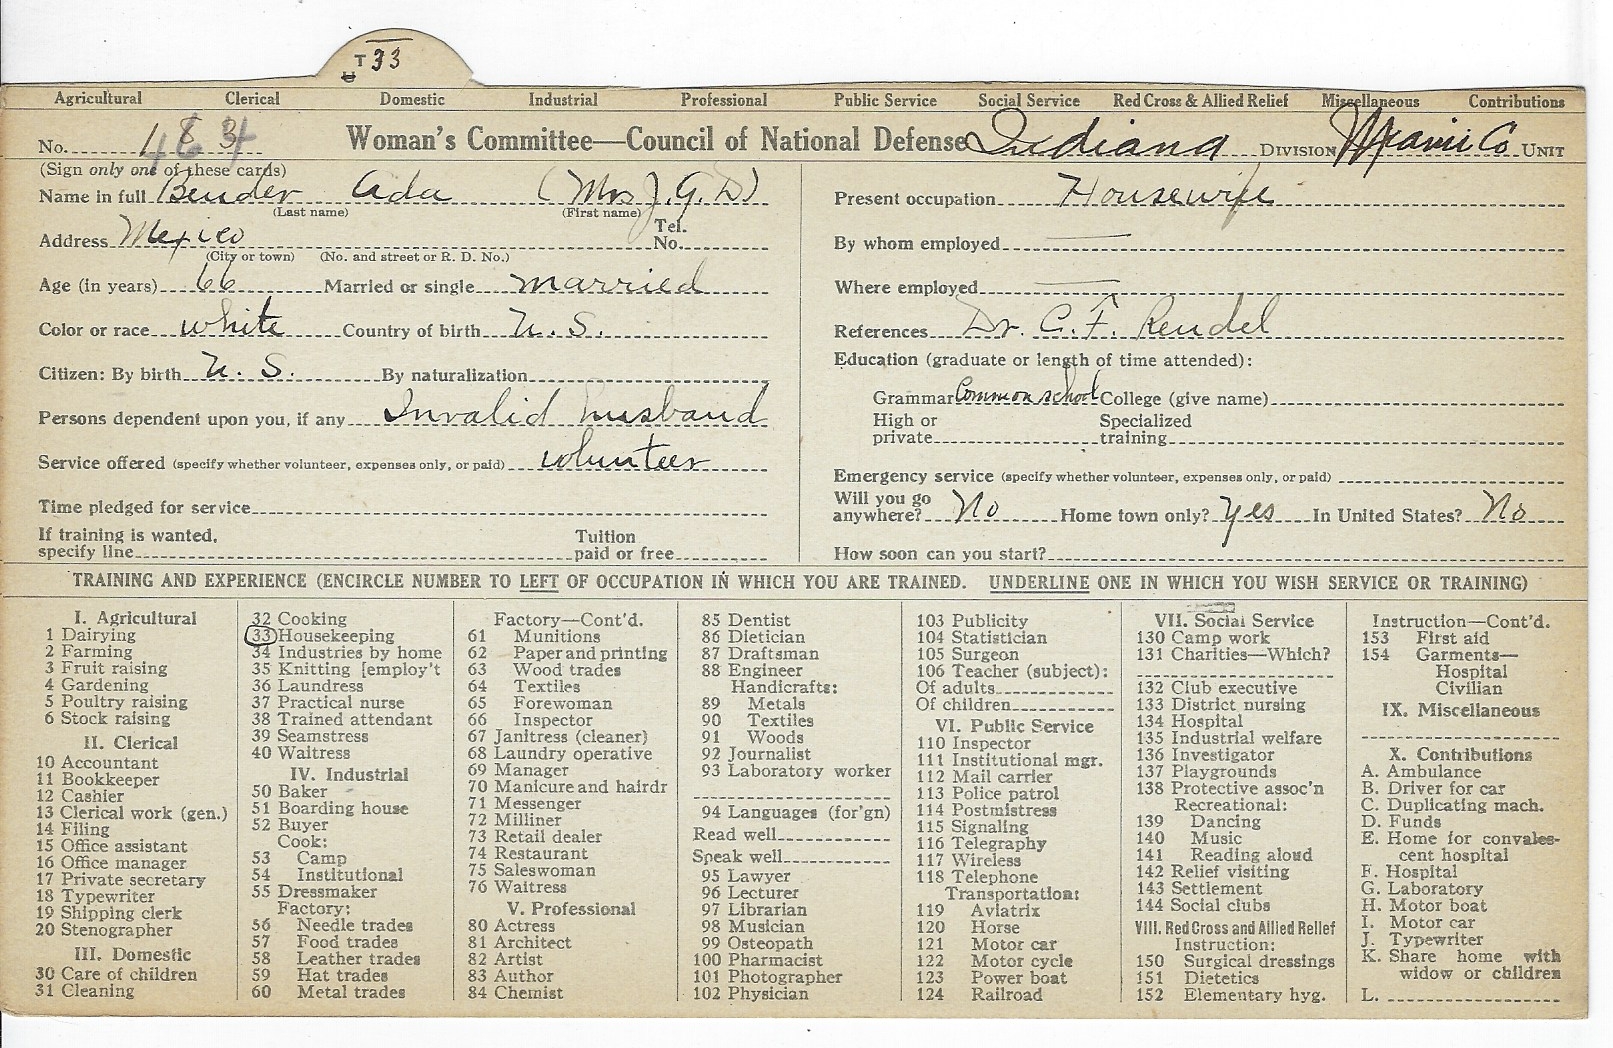 T 33
Agricultural Clerical Domestic Industrial Professional Public Service Social Service Red Cross & Allied Relief Miscellaneous Contributions
No. Woman's Committee—Council of National Defense Indiana DIVISION Miami Co UNIT
(Sign only one of these cards)
Name in full Bender Ada (Mrs J. G. D)
(Last name) (First name)
Address Mexico Tel. No.
(City or town) (No. and street or R. D. No.)
Age (in years) 66 Married or single married
Color or race white Country of birth U. S.
Citizen: By birth U. S. By naturalization
Persons dependent upon you, if any Invalid husband
Service offered (specify whether volunteer, expenses only, or paid) volunteer
Time pledged for service
If training is wanted, specify line Tuition paid or free
Present occupation Housewife
By whom employed
Where employed
References Dr. C. F. Rendel
Education (graduate or length of time attended):
Grammar Common school College (give name)
High or private Specialized training
Emergency service (specify whether volunteer, expenses only, or paid)
Will you go anywhere? No Home town only? Yes In United States? No
How soon can you start?
TRAINING AND EXPERIENCE (ENCIRCLE NUMBER TO LEFT OF OCCUPATION IN WHICH YOU ARE TRAINED. UNDERLINE ONE IN WHICH YOU WISH SERVICE OR TRAINING)
I. Agricultural
1 Dairying
2 Farming
3 Fruit raising
4 Gardening
5 Poultry raising
6 Stock raising
II. Clerical
10 Accountant
11 Bookkeeper
12 Cashier
13 Clerical work (gen.)
14 Filing
15 Office assistant
16 Office manager
17 Private secretary
18 Typewriter
19 Shipping clerk
20 Stenographer
III. Domestic
30 Care of children
31 Cleaning
32 Cooking
33 Housekeeping
34 Industries by home
35 Knitting [employ't
36 Laundress
37 Practical nurse
38 Trained attendant
39 Seamstress
40 Waitress
IV. Industrial
50 Baker
51 Boarding house
52 Buyer
Cook:
53 Camp
54 Institutional
55 Dressmaker
Factory:
56 Needle trades
57 Food trades
58 Leather trades
59 Hat trades
60 Metal trades
Factory—Cont'd.
61 Munitions
62 Paper and printing
63 Wood trades
64 Textiles
65 Forewoman
66 Inspector
67 Janitress (cleaner)
68 Laundry operative
69 Manager
70 Manicure and hairdr
71 Messenger
72 Milliner
73 Retail dealer
74 Restaurant
75 Saleswoman
76 Waitress
V. Professional
80 Actress
81 Architect
82 Artist
83 Author
84 Chemist
85 Dentist
86 Dietician
87 Draftsman
88 Engineer
Handicrafts:
89 Metals
90 Textiles
91 Woods
92 Journalist
93 Laboratory worker
94 Languages (for'gn)
Read well
Speak well
95 Lawyer
96 Lecturer
97 Librarian
98 Musician
99 Osteopath
100 Pharmacist
101 Photographer
102 Physician
103 Publicity
104 Statistician
105 Surgeon
106 Teacher (subject):
Of adults
Of children
VI. Public Service
110 Inspector
111 Institutional mgr.
112 Mail carrier
113 Police patrol
114 Postmistress
115 Signaling
116 Telegraphy
117 Wireless
118 Telephone
Transportation:
119 Aviatrix
120 Horse
121 Motor car
122 Motor cycle
123 Power boat
124 Railroad
VII. Social Service
130 Camp work
131 Charities—Which?
132 Club executive
133 District nursing
134 Hospital
135 Industrial welfare
136 Investigator
137 Playgrounds
138 Protective assoc'n
Recreational:
139 Dancing
140 Music
141 Reading aloud
142 Relief visiting
143 Settlement
144 Social clubs
VIII. Red Cross and Allied Relief
Instruction:
150 Surgical dressings
151 Dietetics
152 Elementary hyg.
Instruction—Cont'd.
153 First aid
154 Garments—
Hospital
Civilian
IX. Miscellaneous
X. Contributions
A. Ambulance
B. Driver for car
C. Duplicating mach.
D. Funds
E. Home for convales-
cent hospital
F. Hospital
G. Laboratory
H. Motor boat
I. Motor car
J. Typewriter
K. Share home with
widow or children
L.